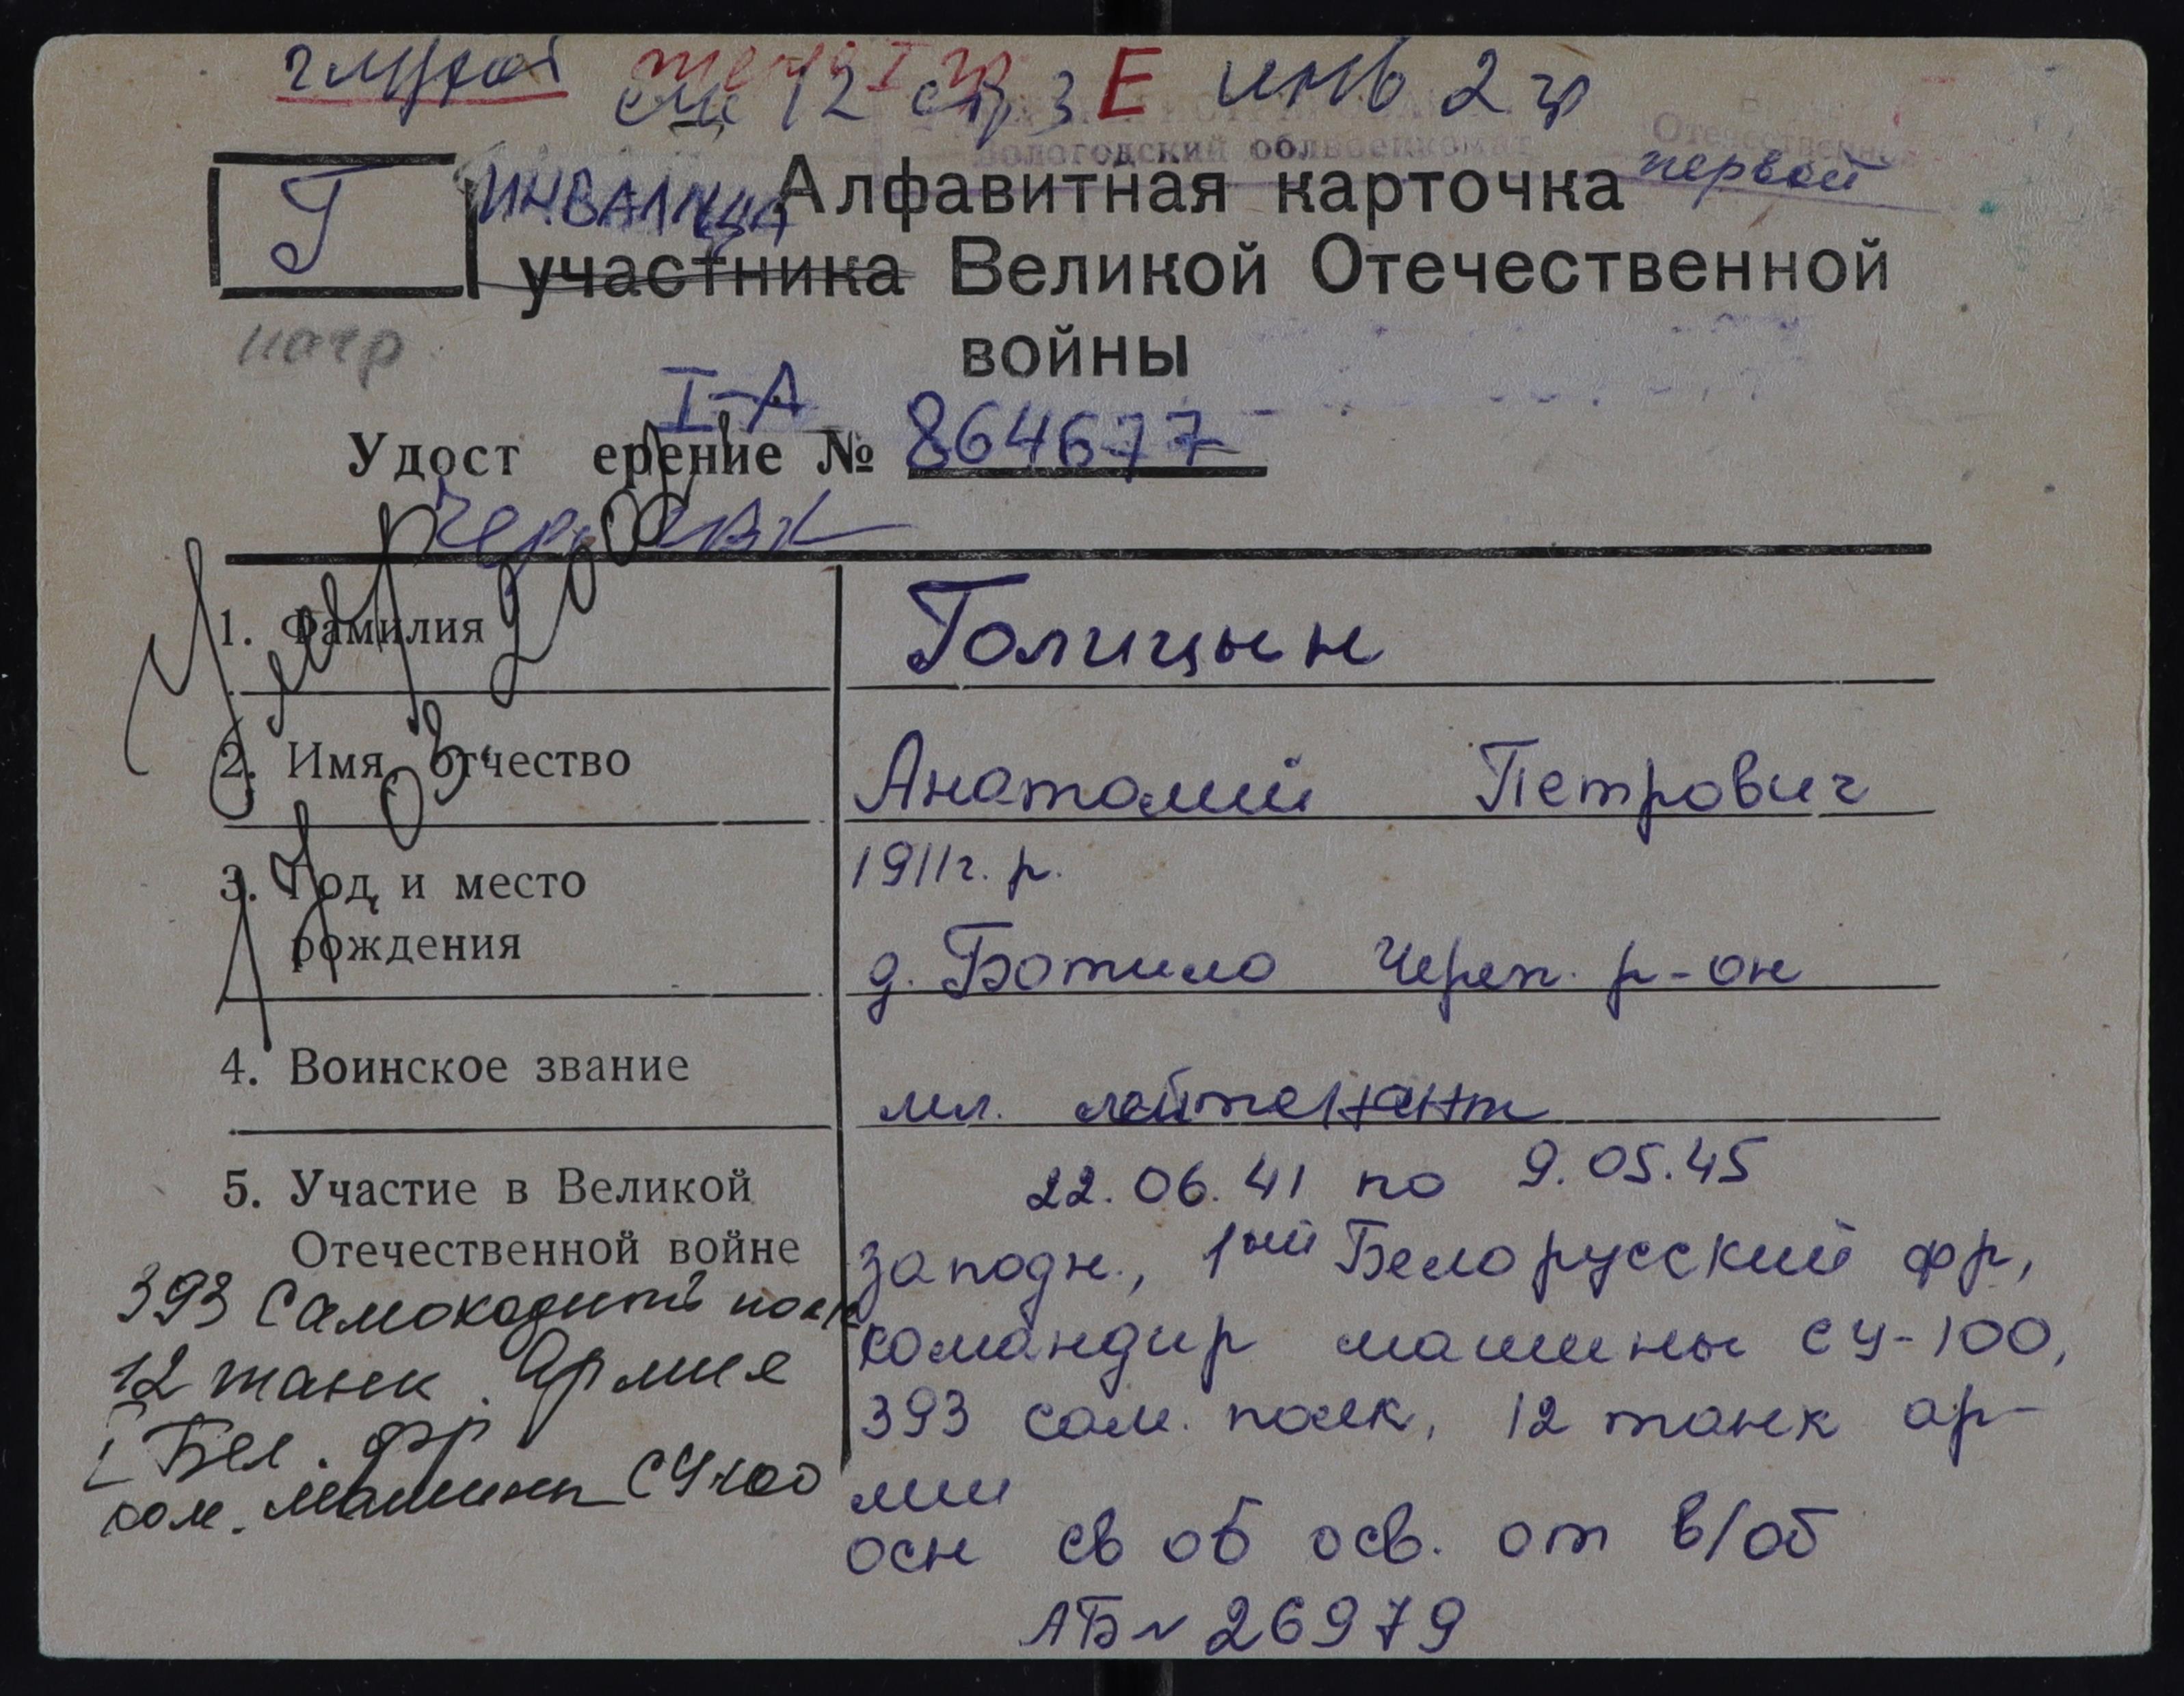 глухой Е инв 2 гр
Вологодский облвоенкомат Отечественно
Г ИНВАЛИДА Алфавитная карточка первой
участника Великой Отечественной
войны
I-А
Удост ерение № 864677
Умер
1. Фамилия Голицын
2. Имя, отчество Анатолий Петрович
3. Год и место 1911 г. р.
рождения д. Ботило Череп. р-он
4. Воинское звание мл. лейтенант
5. Участие в Великой 22.06.41 по 9.05.45
Отечественной войне западн., 1ый Белорусский фр,
393 самоходный полк командир машины СУ-100,
12 танк. Армия 393 сам. полк, 12 танк ар-
I Бел. фр мии
ком. машины СУ100
осн св об осв. от в/об
АБ № 26979